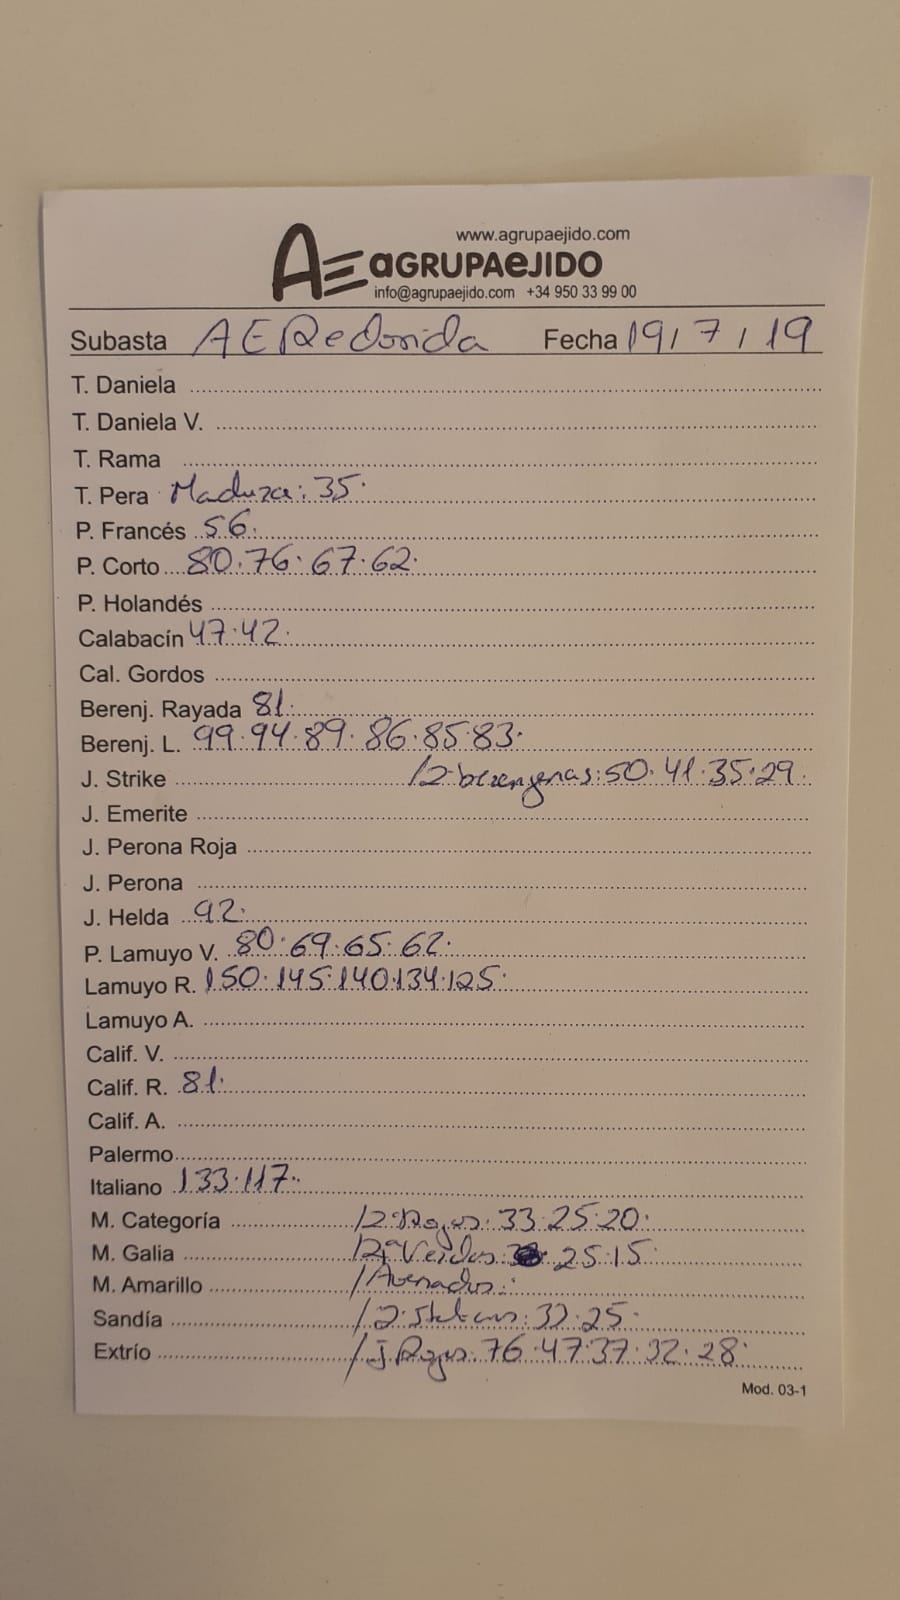 www.agrupaejido.com
AE AGRUPAEJIDO
info@agrupaejido.com +34 950 33 99 00
Subasta AE Redonda Fecha 19/7/19
T. Daniela
T. Daniela V.
T. Rama
T. Pera Madura: 35.
P. Francés 56.
P. Corto 80.76.67.62.
P. Holandés
Calabacín 47.42.
Cal. Gordos
Berenj. Rayada 81.
Berenj. L. 99.94.89.86.85.83.
J. Strike /2ª berengenas: 50.41.35.29.
J. Emerite
J. Perona Roja
J. Perona
J. Helda 92.
P. Lamuyo V. 80.69.65.62.
Lamuyo R. 150.145.140.134.125.
Lamuyo A.
Calif. V.
Calif. R. 81.
Calif. A.
Palermo
Italiano 133.117.
M. Categoría /2ª Rojos: 33.25.20.
M. Galia /2ª Verdes: 25.15.
M. Amarillo /Avenados:
Sandía /2ª 32.25.
Extrío /J. Rojos: 76.47.37.32.28.
Mod. 03-1